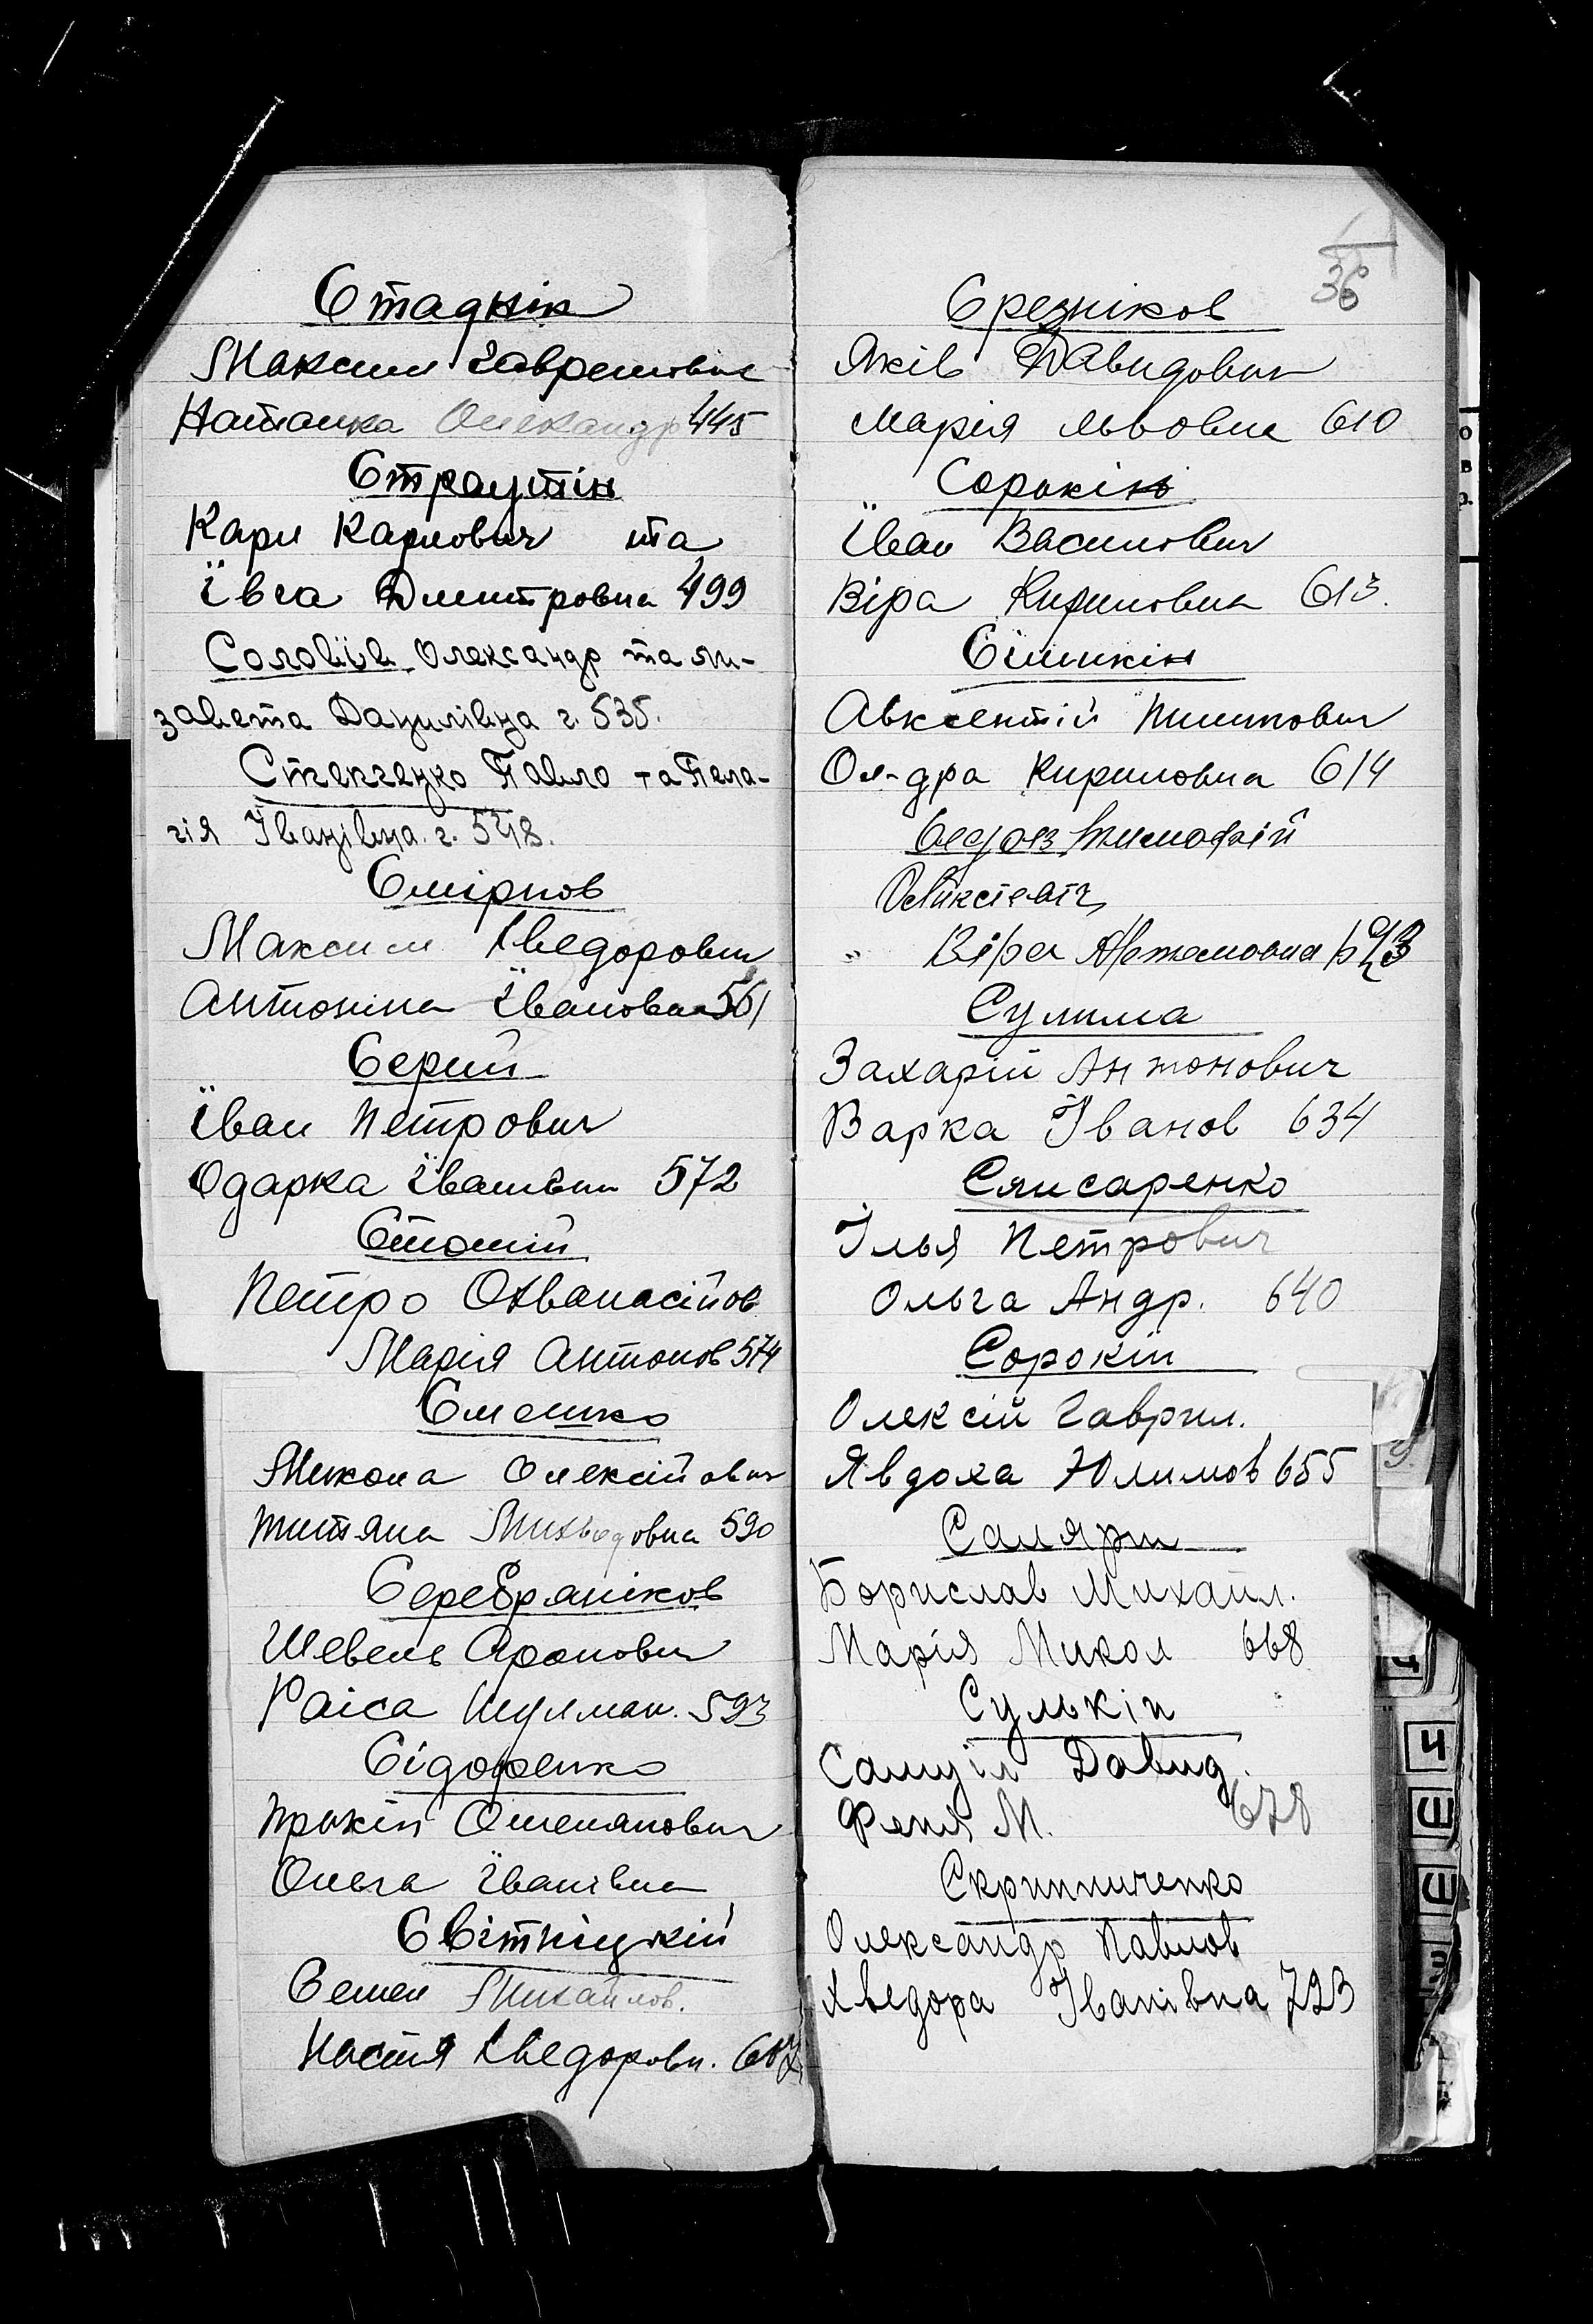 Стаднік
Максим Гаврилович
Наталка Олександр 445
Страутін
Карл Карлович та
Ївга Дмитровна 499
Соловйів Олександр та Ли-
завета Данилівна г. 535.
Степченко Павло та Пела-
гія Їванівна. г. 548.
Смірнов
Максим Хведорович
Антоніна Їванова 561
Серий
Їван Петрович
Одарка Їванівна 572
Стоній
Петро Охванасійов
Марія Антонов 574
Смешко
Микола Олексійович
Титяна 590
Серебряніков
Шевель Аронович
Раіса Шулман. 593
Сідоренко
Прокіп Степанович
Олега Їванівна
Світніцькій
Семен Михайлов.
Настя Хведоровн. 607
36
Срезніков
Яків Давидович
Марія Львовна 610
Сорокін
Їван Василович
Віра Кириловна 613.
Сішкін
Авксентій Пилипович
Ол-дра Кириловна 614
Седов Тимофій
" Віра Артемовна 623
Сулима
Захарій Антонович
Варка Їванов 634
Слисаренко
Їлья Петрович
Ольга Андр. 640
Сорокін
Олексій Гаврил.
Явдоха Юлимов 655
Саляри
Борислав Михайл.
Марія Микол 668
Сулькін
Самуіл Давид.
Феня М. 678
Скрипниченко
Олександр Павлов
Хведора Їванівна 723
Ч
Ш